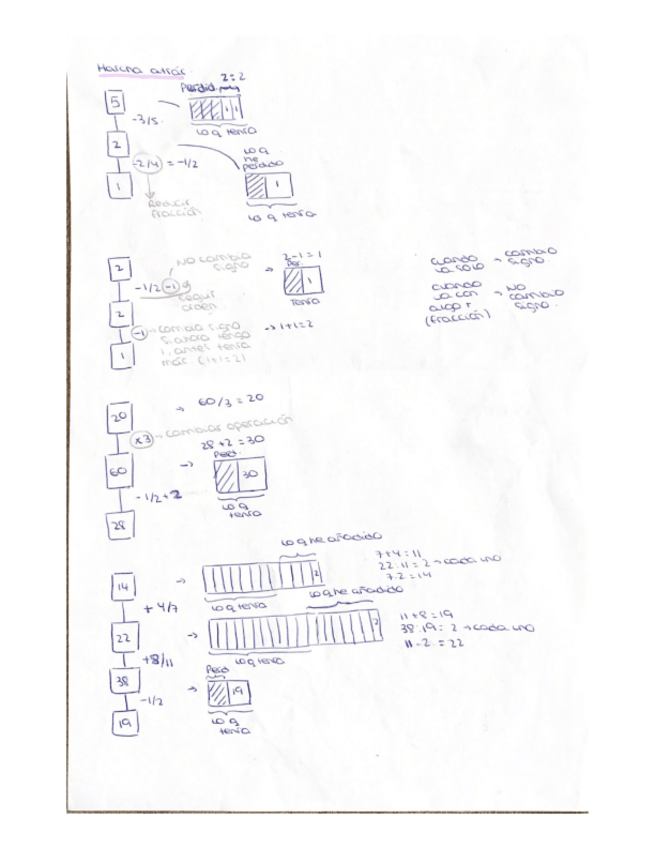 Marcha atrás
2:2
Perdid.
5
1 1
-3/5
lo q tenía
2
lo q
he
perdido
-2/4 = -1/2
1
1
Reducir
fracción
lo q tenía
NO cambio
signo
2-1=1
Per.
cuando
va solo → cambio
signo.
2
→
1
-1/2 -1
tenía
cuando
va con
algo +
(fracción)
→ NO
cambio
signo.
seguir
orden.
2
-1 → cambia signo
→ 1+1=2
si ahora tengo
1, antes tenía
más (1+1=2)
1
20
→ 60/3 = 20
x3 → cambiar operación
28+2=30
Perd.
60
→
30
-1/2+2
lo q
tenía
28
lo q he añadido
7+4=11
22:11=2 → cada uno
7·2=14
14
→
2
lo q tenía
lo q he añadido
+4/7
22
→
2
11+8=19
38:19=2 → cada uno
11-2=22
+8/11
lo q tenía
38
Perd
→
19
-1/2
lo q
tenía
19